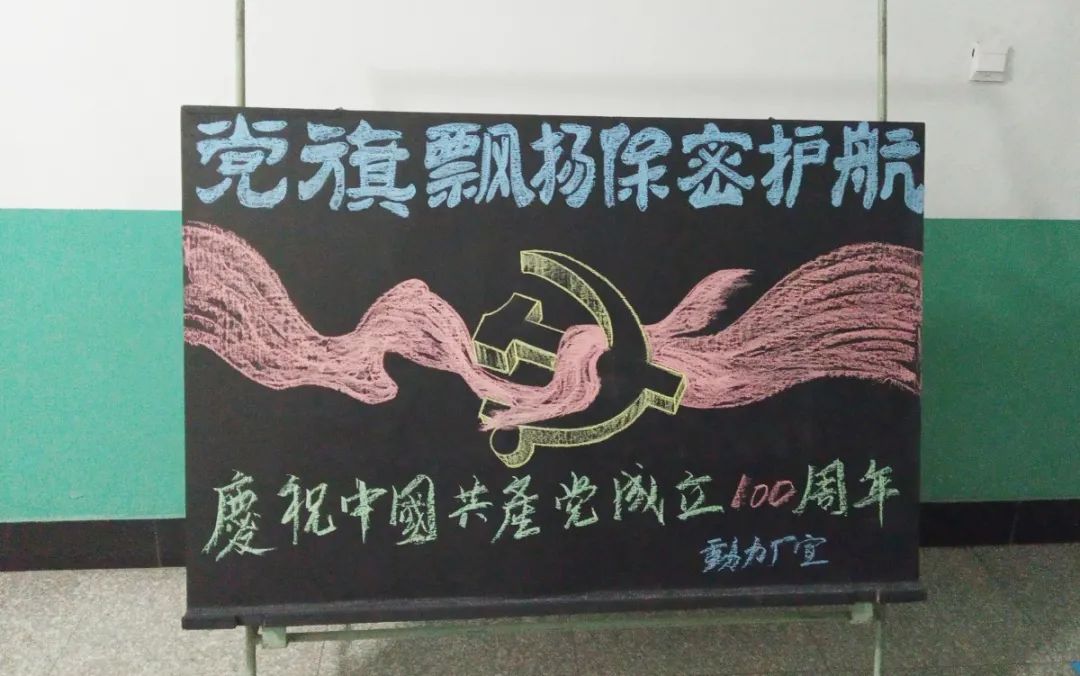 党旗飘扬保密护航
慶祝中國共産党成立100周年
動力厂宣